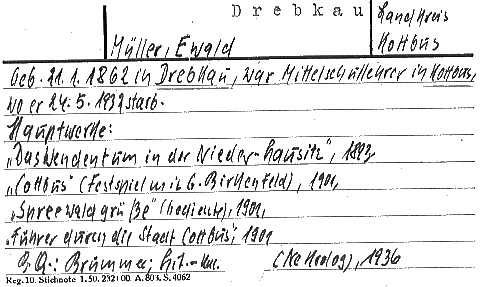 Drebkau
Landkreis
Kottbus
Müller, Ewald
Geb. 21.1.1862 in Drebkau, war Mittelschullehrer in Kottbus,
wo er 24.5.1932 starb.
Hauptwerke:
„Das Wendentum in der Nieder-Lausitz", 1893,
„Cottbus" (Festspiel mit G. Birkenfeld), 1901,
„Spreewaldgrüße" (Gedichte), 1901,
„Führer durch die Stadt Cottbus", 1901
B.Q.: Brümmer; Lit.- (Nekrolog), 1936
Reg. 10. Stichnote 1.50. 232100 A. 803. S. 4062